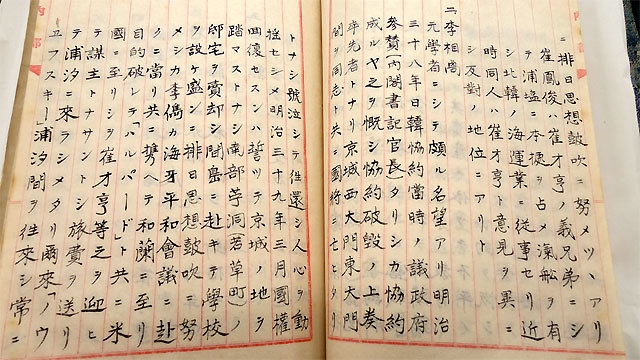 ニ排日思想鼓吹ニ努メツヽアリ
崔鳳俊ハ崔才亨ノ義兄弟ニシ
テ浦塩ニ本拠ヲ占メ滊舩ヲ有
シ北韓ノ海運業ニ従事セリ近
時同人ハ崔才亨ト意見ヲ異ニ
シ反對ノ地位ニアリト
二、李相卨
元學者ニシテ頗ル名望アリ明治
三十八年日韓協約當時ノ議政府
参賛(内閣書記官長)タリシカ協約
成ルヤ之ヲ慨シ協約破毀ノ上奏
率先者トナリ京城西大門東大門
間ヲ同志ト共ニ國将ニ亡ヒタリ
トナシ號泣シテ徃還シ人心ヲ動
揺セシメ明治三十九年三月國權
回復セスンハ誓ツテ京城ノ地ヲ
踏マストナシ南部苧洞(若草町)ノ
邸宅ヲ賣却シ間島ニ赴キテ學校
ヲ設ケ盛ンニ排日思想鼓吹ニ努
メシカ李儁カ海牙平和會議ニ赴
クニ當リ共ニ携ヘテ和蘭ニ至リ
目的破レテ「ハルバード」ト共ニ米
國ニ至リシヲ崔才亨等之ヲ迎ヒ
テ謀主トナサントシ旅費ヲ送リ
テ浦汐ニ來ラシメタリ爾來「ノウ
ヱフスキー」浦汐間ヲ往來シ常ニ